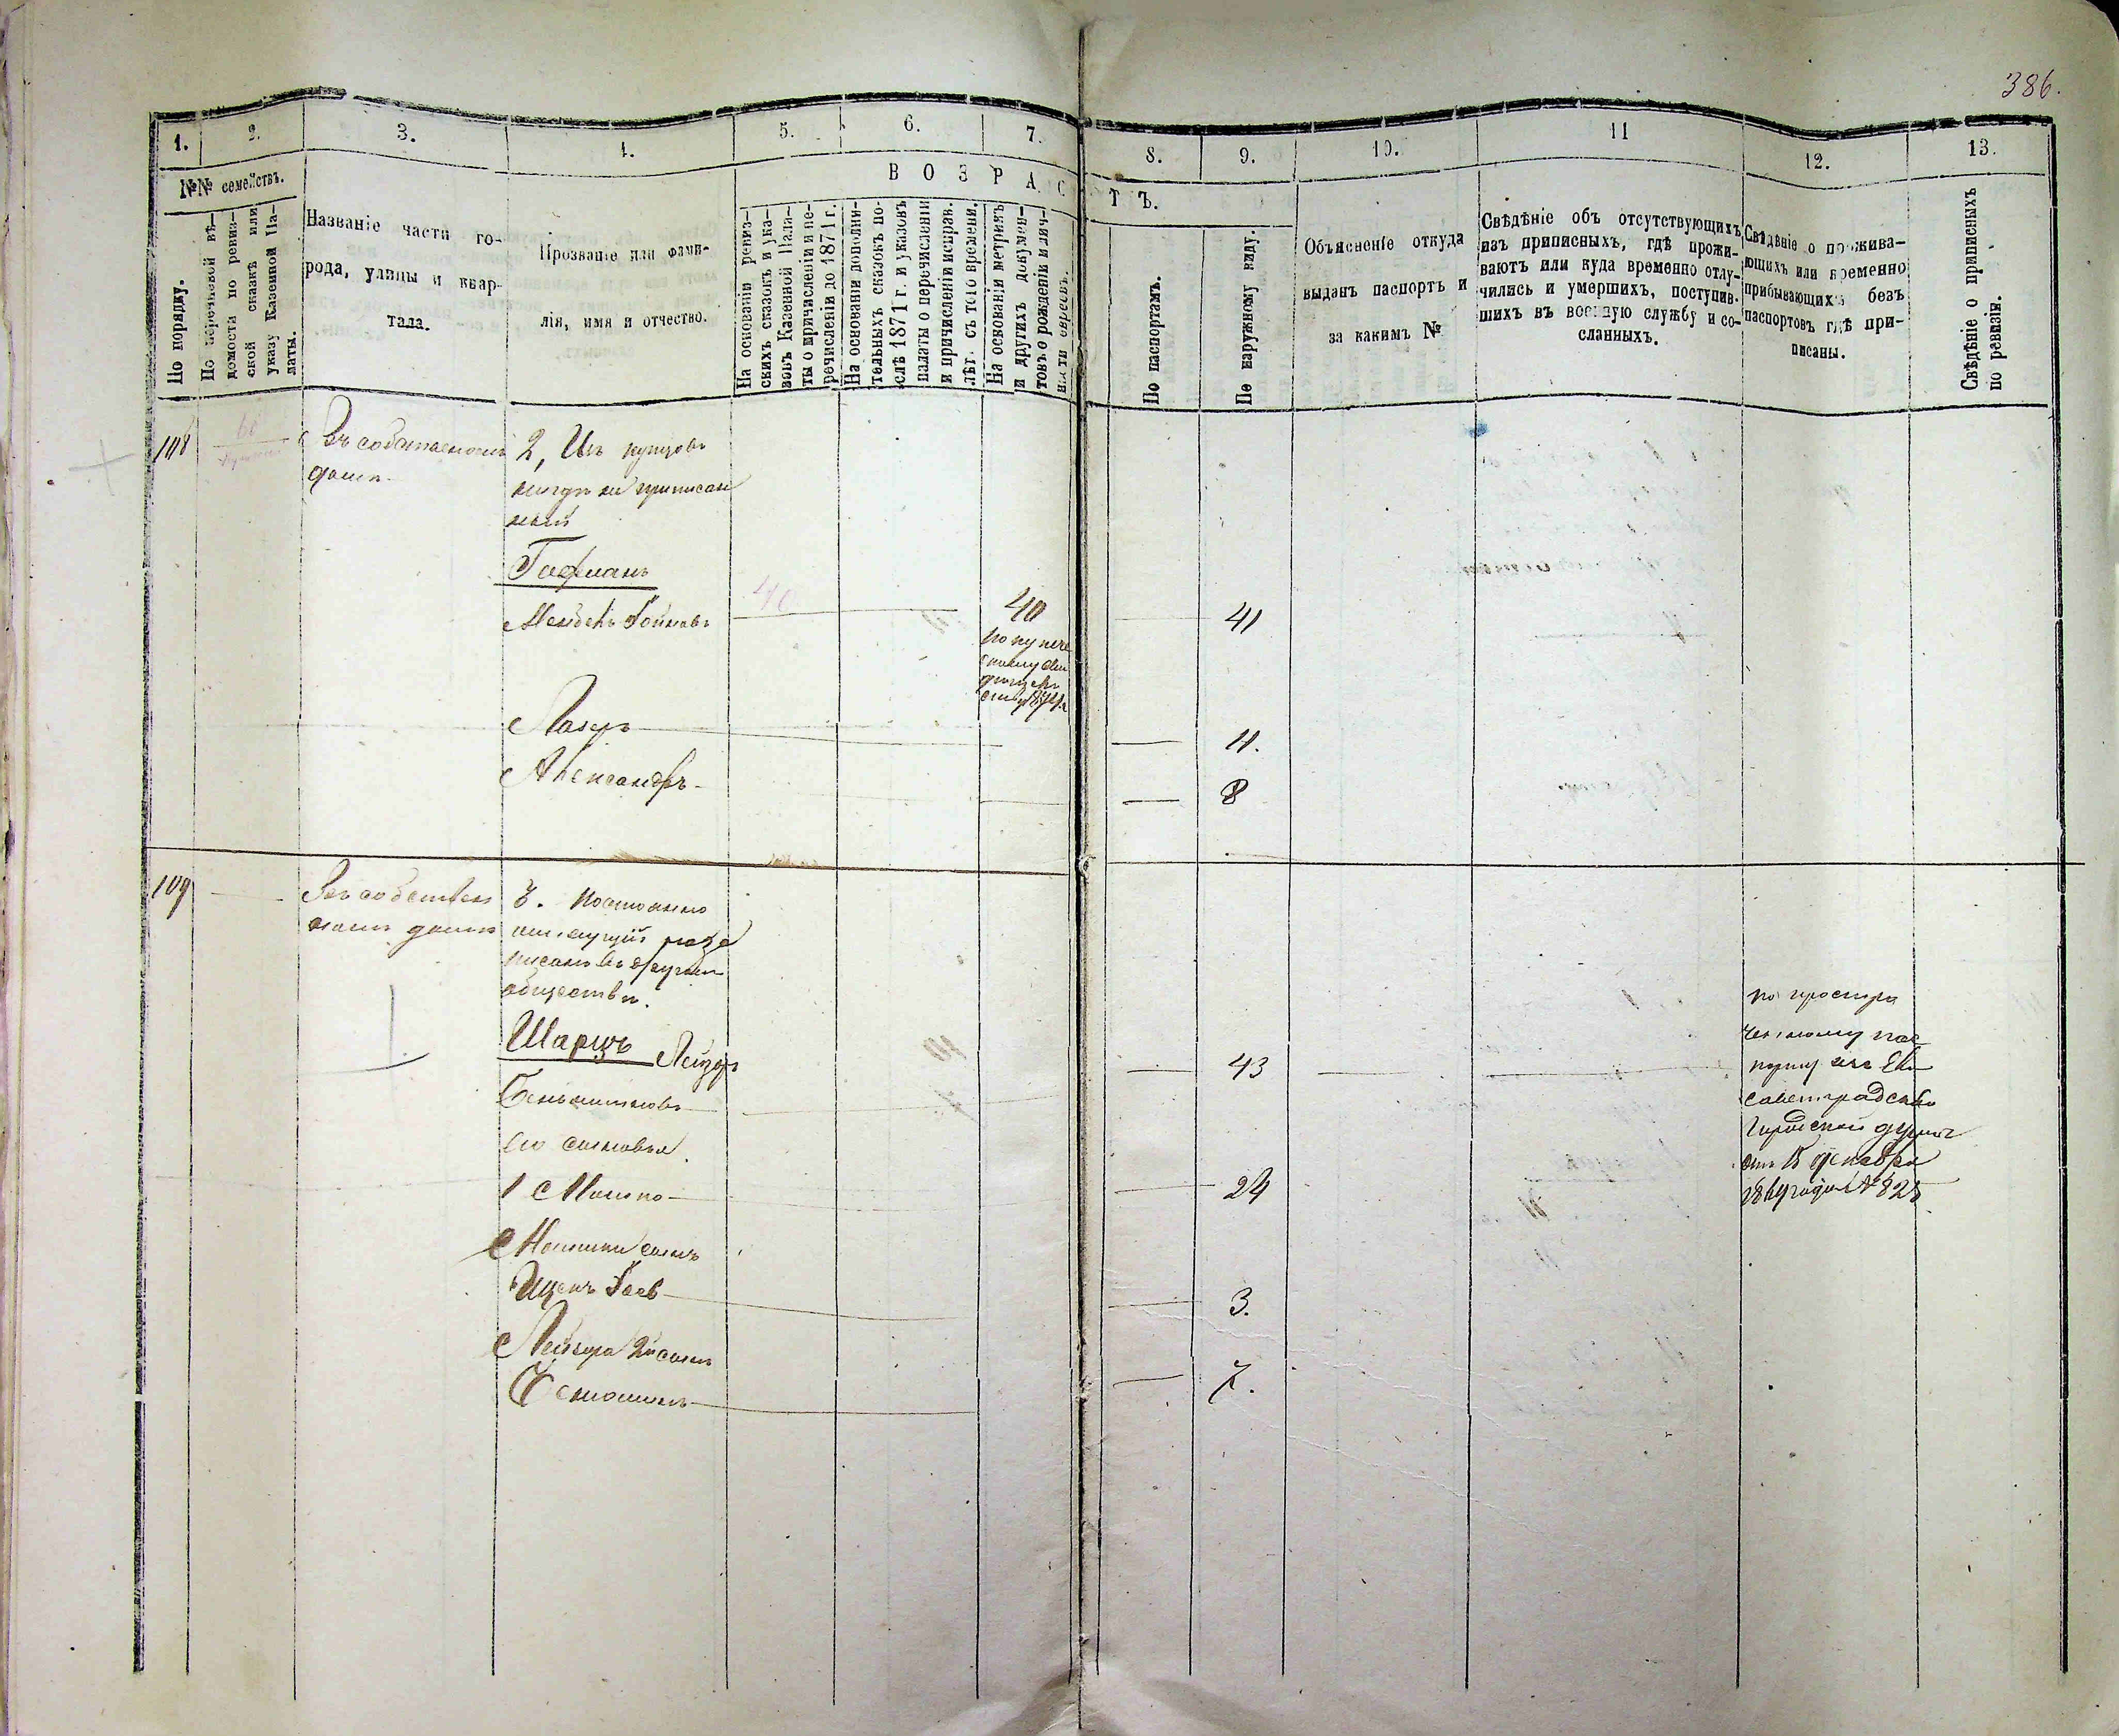 386.
1.
2.
3.
4.
5.
6.
7.
8.
9.
10.
11
12.
13.
№№ семействъ.
ВОЗРАСТЪ.
По порядку.
По перечневой вѣ-
домости по ревиз-
ской сказкѣ или
указу Казенной Па-
латы.
Названіе части го-
рода, улицы и квар-
тала.
Прозваніе или фами-
лія, имя и отчество.
На основаніи ревиз-
скихъ сказокъ и ука-
зовъ Казенной Пала-
ты о причисленіи и пе-
речисленіи до 1871 г.
На основаніи дополни-
тельныхъ сказокъ по-
слѣ 1871 г. и указовъ
палаты о перечисленіи
и причисленіи исправ.
лѣт. съ того времени.
На основаніи метрикъ
и другихъ докумен-
товъ о рожденіи и лич-
ности евреевъ.
По паспортамъ.
По наружному виду.
Объясненіе откуда
выданъ паспортъ и
за какимъ №
Свѣдѣніе объ отсутствующихъ
изъ приписныхъ, гдѣ прожи-
ваютъ или куда временно отлу-
чились и умершихъ, поступив.
шихъ въ военную службу и со-
сланныхъ.
Свѣдѣніе о прожива-
ющихъ или временно
прибывающихъ безъ
паспортовъ гдѣ при-
писаны.
Свѣдѣніе о приписныхъ
по ревизіи.
108
60
Въ собственомъ
домѣ
2, Изъ купцовъ
нигдѣ не приписан
ный
Гофманъ
Мендель Гойновъ
40
40
по купече
скому сви
дѣтель
ству 1874 г.
41
Лазеръ
11.
Александръ
8
109
Въ собствен
номъ домѣ
3. Постоянно
живущій но за
писанъ въ другомъ
обществѣ.
Шарцъ Лейзеръ
Беньяминовъ
43
его сыновья
1 Мошко
24
Мошки сынъ
Ицекъ Іосъ
3.
Лейзера 2й сынъ
7.
по просро
ченному пас
порту изъ Ели
саветградской
Городской думы
отъ 15 декабря
1869 года № 825